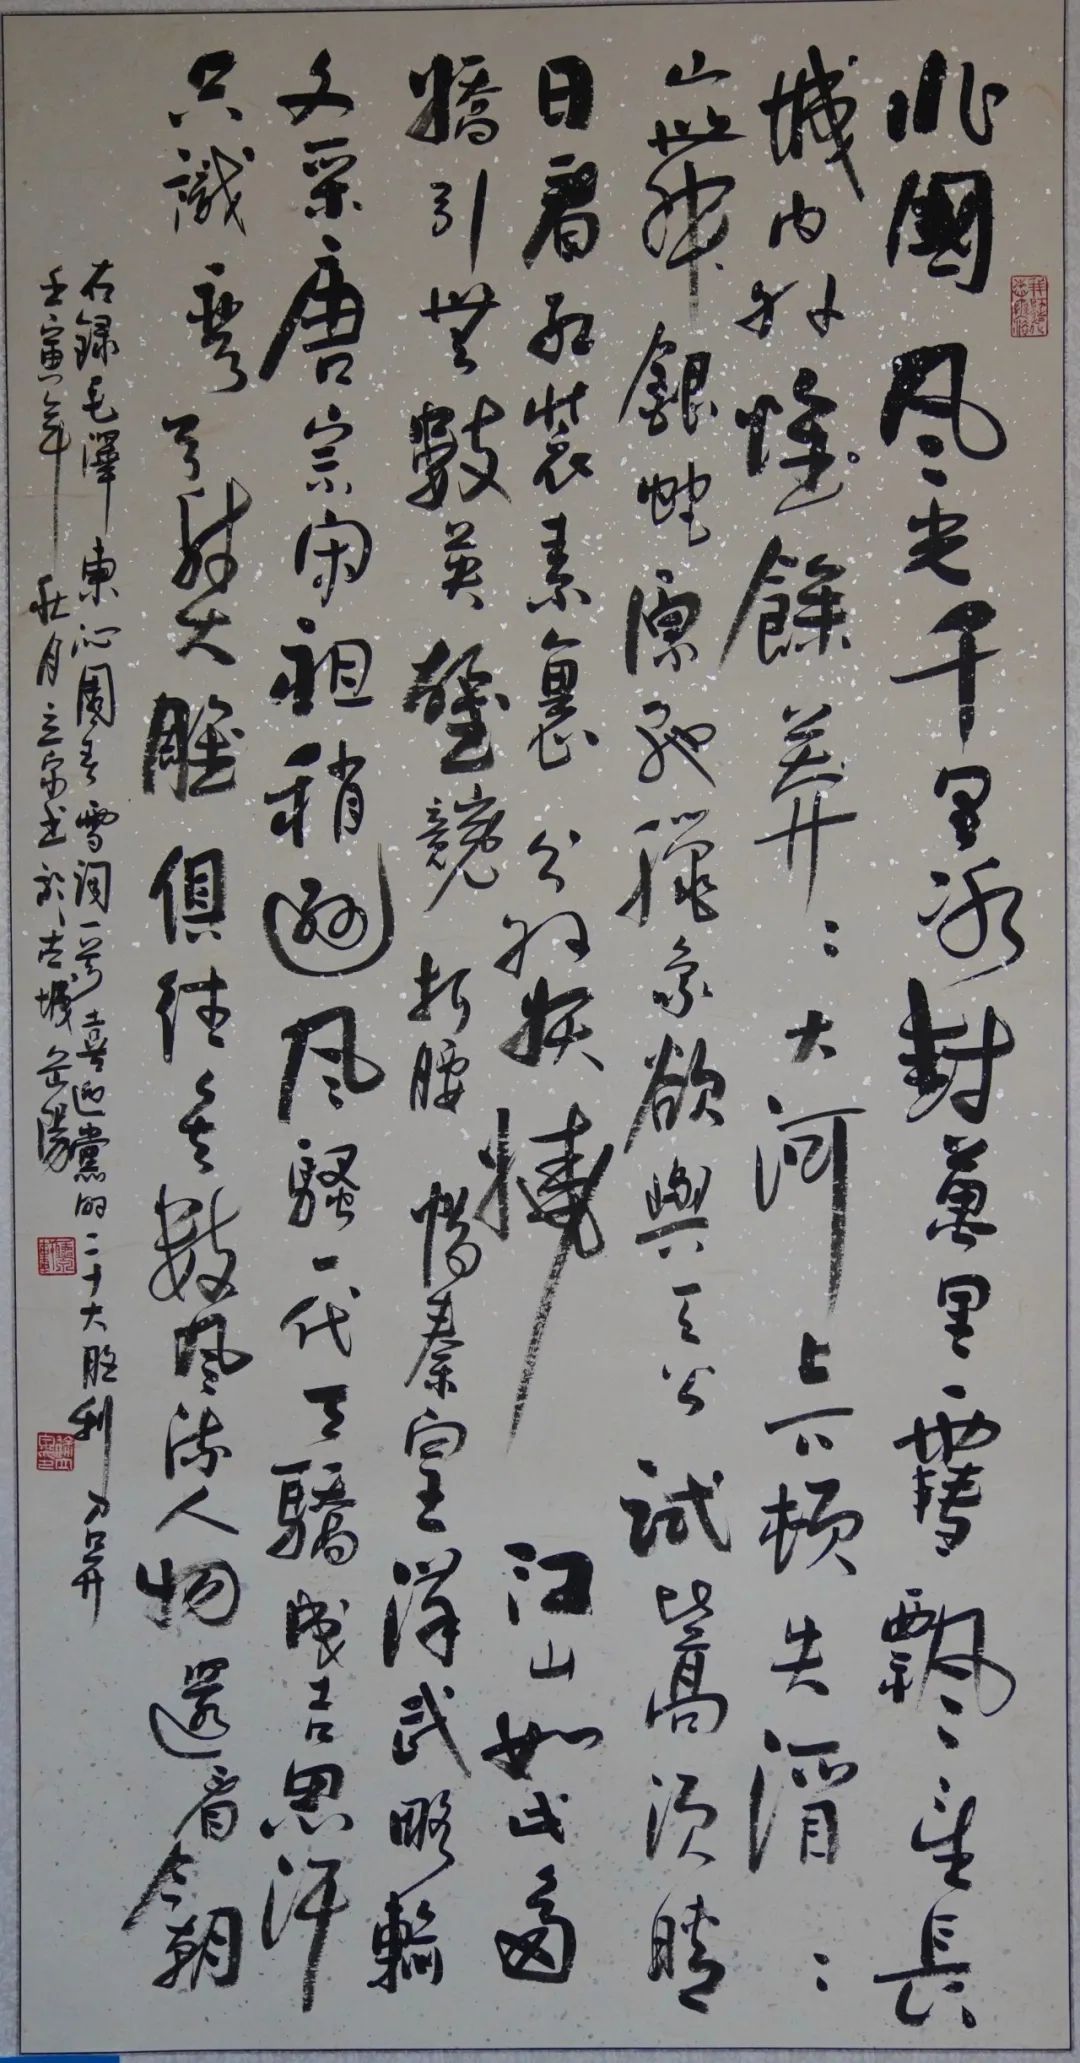 北國風光千里冰封萬里雪飄望長
城内外惟餘莽〻大河上下頓失滔〻
山舞銀蛇原馳蠟象欲與天公試比高須晴
日看紅裝素裹分外妖嬈江山如此多
嬌引無數英雄競折腰惜秦皇漢武略輸
文采唐宗宋祖稍遜風騷一代天驕成吉思汗
只識彎弓射大雕俱往矣數風流人物還看今朝
右錄毛澤東沁園春雪詞一首喜迎黨的二十大勝利召開
壬寅年秋月立宗書於古城岳陽